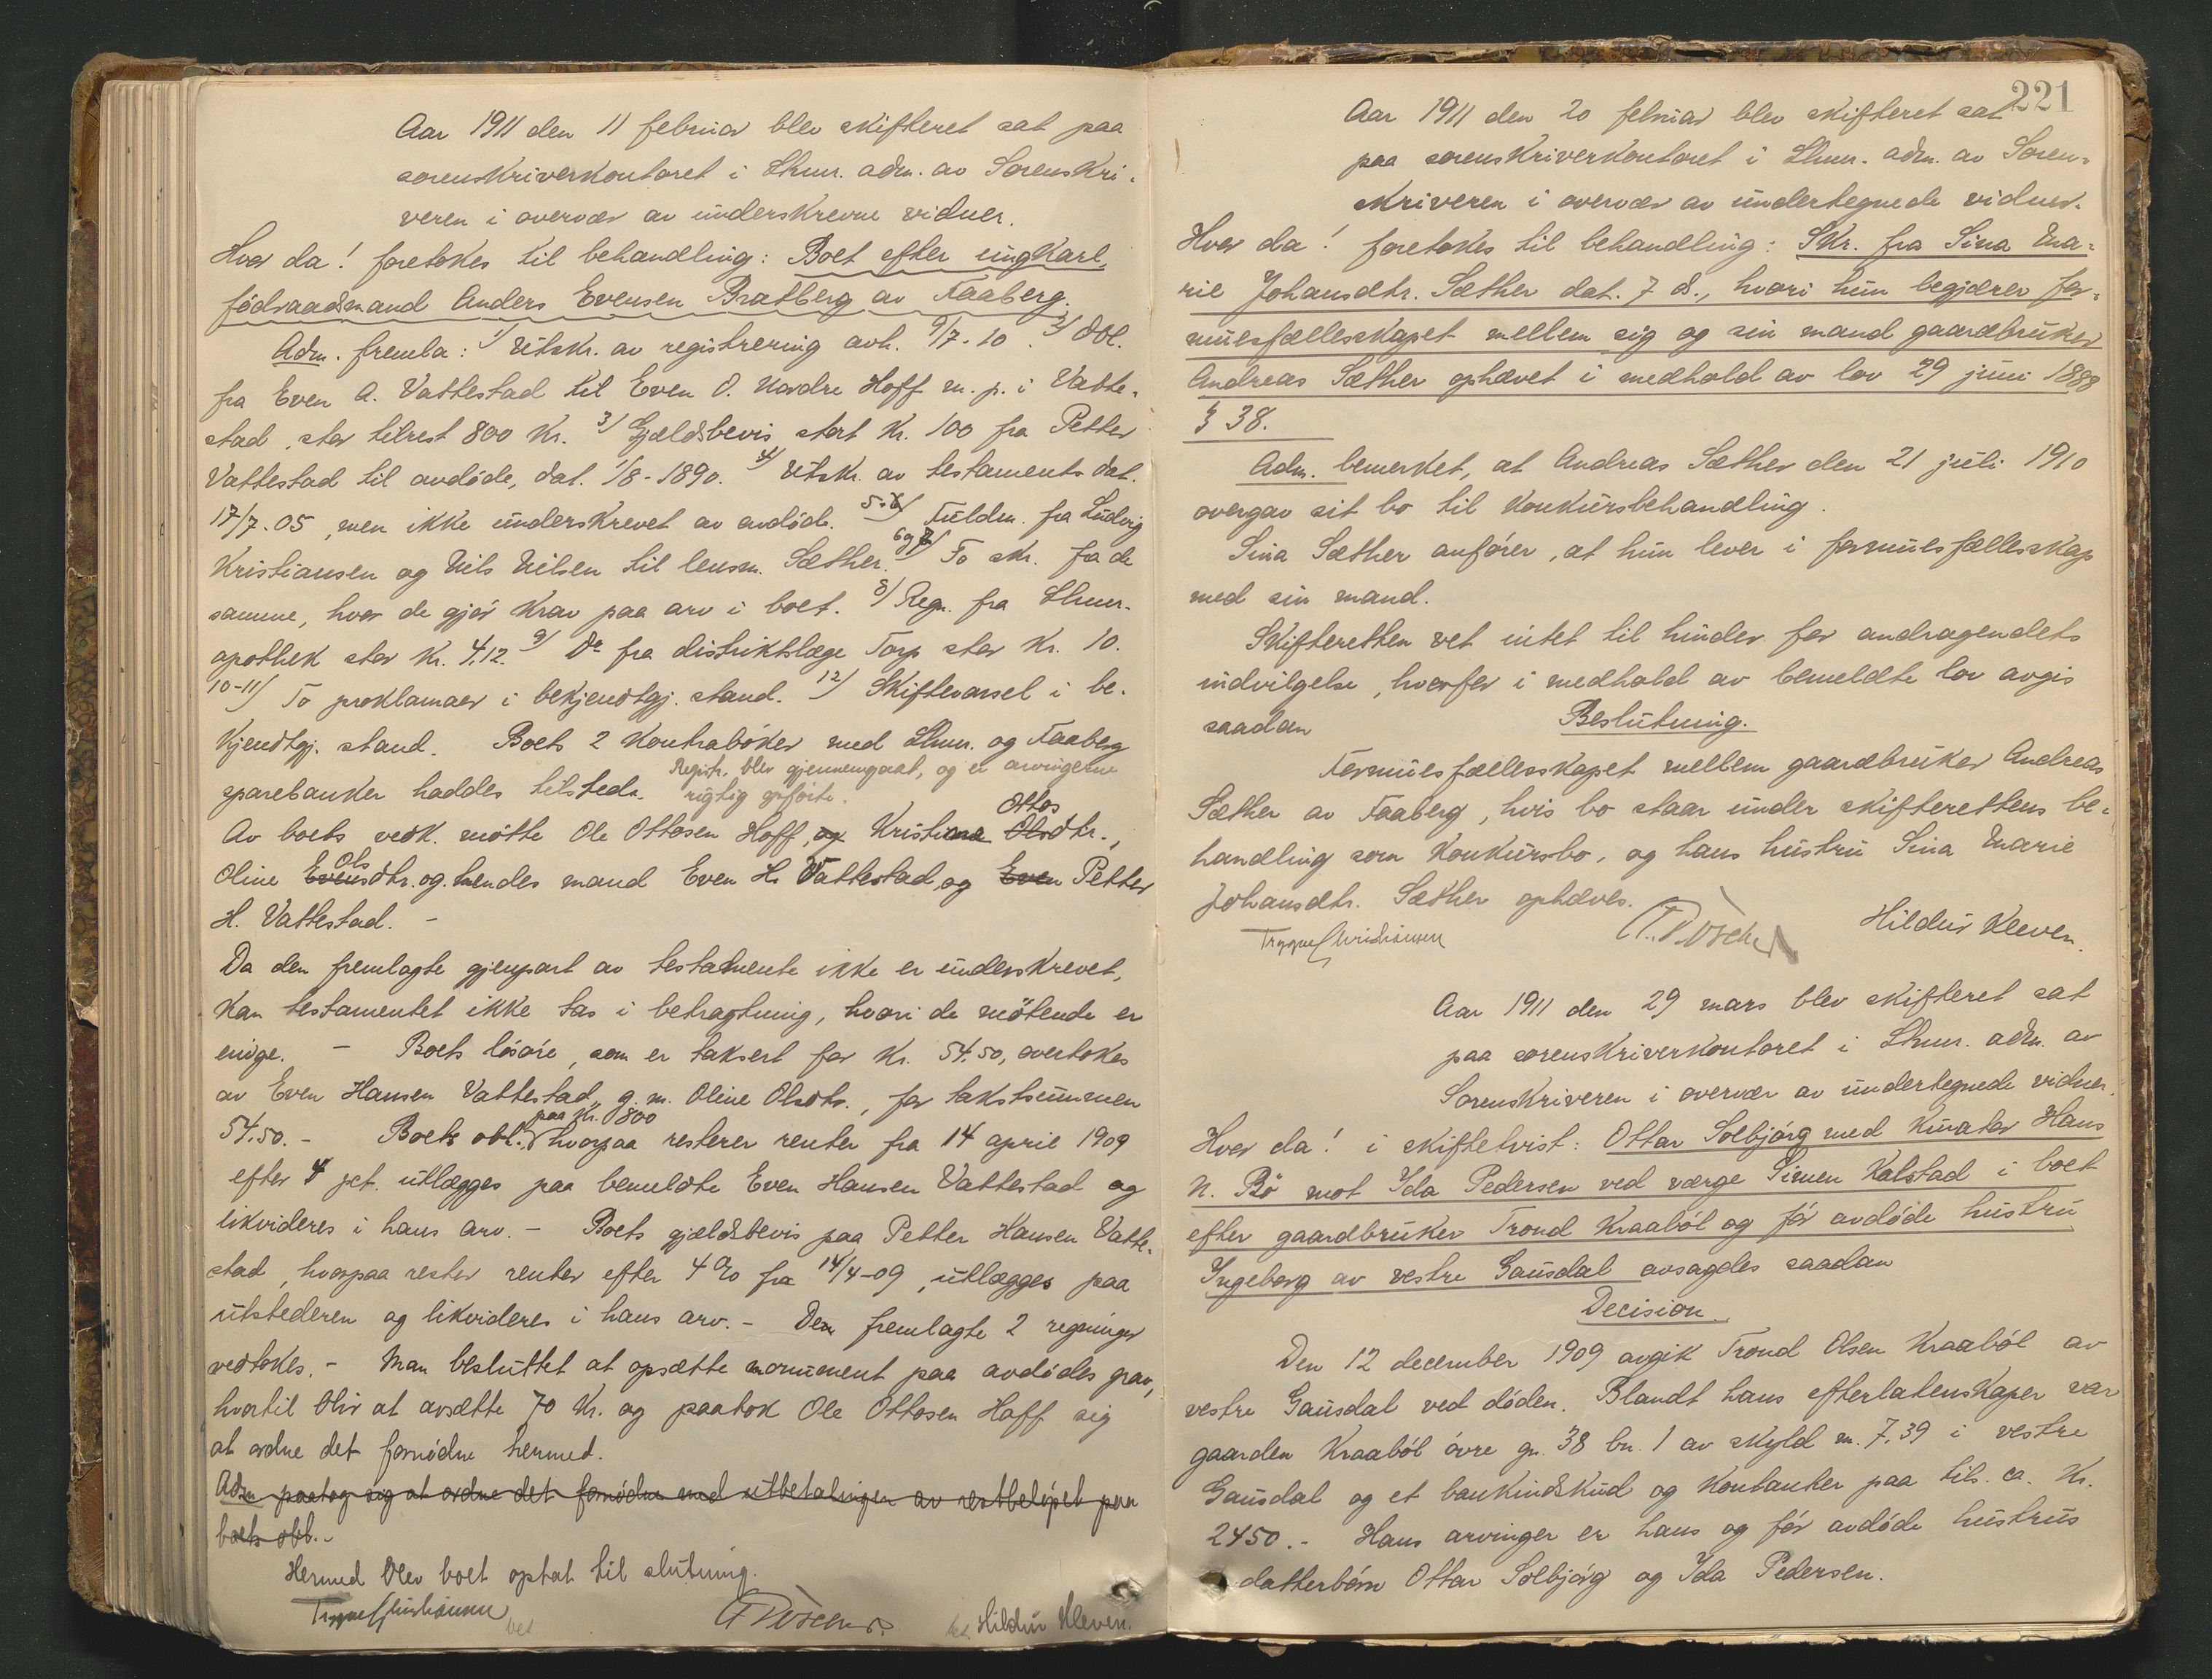 Aar 1911 den 11 februar blev skifteret sat paa
sorenskriverkontoret i Lhmr. adm. av Sorenskri-
veren i overvær av underskrevne vidner.
Hvor da! foretokes til behandling: Boet efter ungkarl,
födraadsmand Anders Evensen Bratberg av Faaberg.
Adm. fremla: 1/ Utskr. av registrering avh. 9/7-10. 2/ Obl.
fra Even A. Vattestad til Even O. Nordre Hoff m. p. i Vatte-
stad, stor tilrest 800 Kr. 3/ Gjældsbevis stort Kr. 100 fra Petter
Vattestad til avdöde, dat. 1/8-1890. 4/ Utskr. av testaments dat.
17/7-05, men ikke underskrevet av avdöde. 5/ Fuldm. fra Ludvig
Kristiansen og Nils Nilsen til lensm. Sæther. 6 og 7/ To skr. fra de
samme, hvor de gjör krav paa arv i boet. 8/ Regn. fra Lhmr.
apothek stor Kr. 4,12. 9/ Do fra distriktslæge Torp stor Kr. 10.
10-11/ To proklamaer i bekjendtgj. stand. 12/ Skiftevarsel i be-
kjendtgj. stand. Boets 2 kontraböker med Lhmr. og Faaberg
sparebanker haddes tilstede. Registr. blev gjennemgaat, og er arvingerne
rigtig opförte.
Av boets vedk. mötte Ole Ottosen Hoff, og Kristiana Ols Ottosdtr.,
Oline Evens Olsdtr. og hendes mand Even H. Vattestad og Even Petter
H. Vattestad. -
Da den fremlagte gjenpart av testamente ikke er underskrevet,
kan testamentet ikke tas i betragtning, hvori de mötende er
enige. - Boets lösöre, som er taksert for Kr. 54.50, overtokes
av Even Hansen Vattestad, g. m. Oline Olsdtr., for takstsummen
54.50. - Boets obl. paa Kr. 800 hvorpaa resterer renter fra 14 april 1909
efter 4 pct. utlægges paa bemeldte Even Hansen Vattestad og
likvideres i hans arv. - Boets gjældsbevis paa Petter Hansen Vatte-
stad, hvorpaa rester renter efter 4 % fra 14/4-09, utlægges paa
utstederen og likvideres i hans arv. - De fremlagte 2 regninger
vedtokes. - Man besluttet at opsætte monument paa avdödes grav,
hvortil blir at avsætte 70 Kr. og paatok Ole Ottosen Hoff sig
at ordne det fornödne hermed.
Adm paatog sig at ordne det fornödne med utbetalingen av restbelöpet paa
boets obl. -
Hermed blev boet optat til slutning.
Trygve Christiansen
Hildur Kleven.
221
Aar 1911 den 20 februar blev skifteret sat
paa sorenskriverkontoret i Lhmr. adm. av Soren-
skriveren i overvær av undertegnede vidner.
Hvor da! foretokes til behandling: Skr. fra Sina Ma-
rie Johansdtr. Sæther dat. 7 ds., hvori hun begjærer for-
muesfællesskapet mellem sig og sin mand gaardbruker
Andreas Sæther ophævet i medhold av lov 29 juni 1888
§ 38.
Adm. bemerket, at Andreas Sæther den 21 juli 1910
overgav sit bo til konkursbehandling.
Sina Sæther anförer, at hun lever i formuesfællesskap
med sin mand.
Skifteretten vet intet til hinder for andragendets
indvilgelse, hvorfor i medhold av bemeldte lov avgis
saadan Beslutning.
Formuesfællesskapet mellem gaardbruker Andreas
Sæther av Faaberg, hvis bo staar under skifterettens be-
handling som konkursbo, og hans hustru Sina Marie
Johansdtr. Sæther ophæves.
Trygve Christiansen
Hildur Kleven.
Aar 1911 den 29 mars blev skifteret sat
paa sorenskriverkontoret i Lhmr. adm. av
Sorenskriveren i overvær av undertegnede vidner.
Hvor da! i skiftetvist: Ottar Solbjörg med kurator Hans
N. Bö mot Ida Pedersen ved værge Simen Kalstad i boet
efter gaardbruker Trond Kraaböl og för avdöde hustru
Ingeborg av vestre Gausdal avsagdes saadan
Decision.
Den 12 december 1909 avgik Trond Olsen Kraaböl av
vestre Gausdal ved döden. Blandt hans efterlatenskaper var
gaarden Kraaböl övre gn. 38 bn. 1 av skyld m. 7,39 i vestre
Gausdal og et bankindskud og kontanter paa tils. ca. Kr.
2450. - Hans arvinger er hans og för avdöde hustrus
datterbörn Ottar Solbjörg og Ida Pedersen.